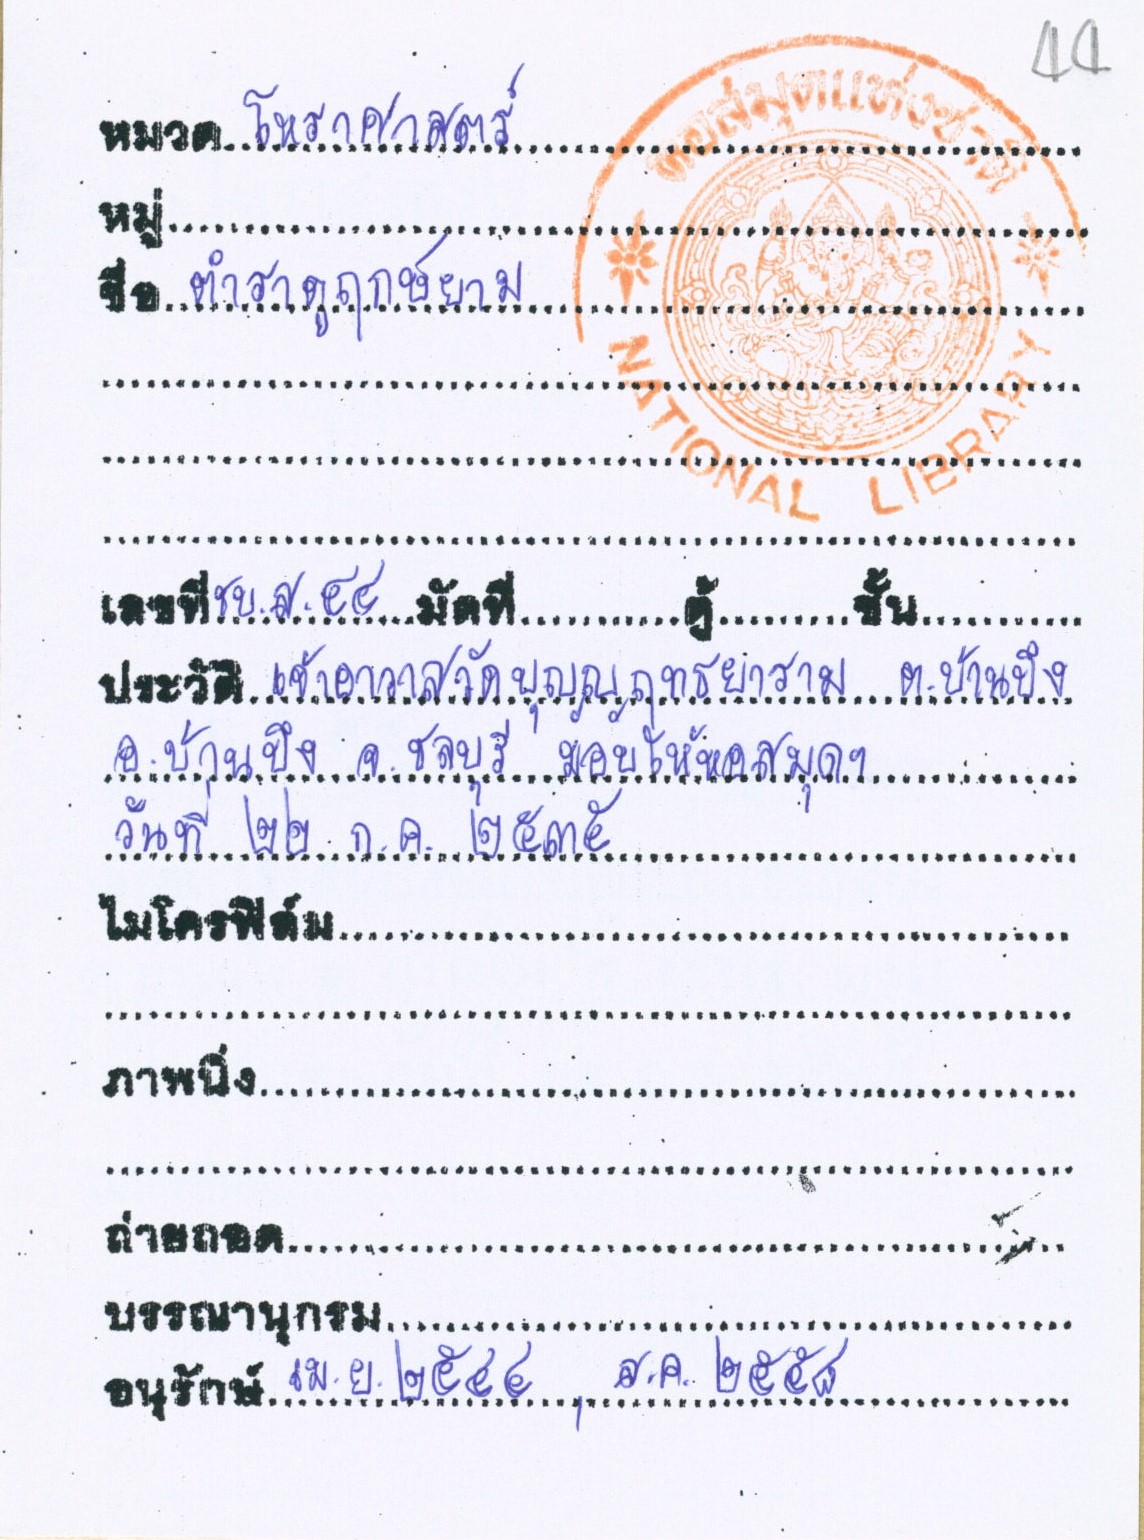 44
หอสมุดแห่งชาติ
NATIONAL LIBRARY
หมวด โหราศาสตร์
หมู่
ชื่อ ตำราดูฤกษ์ยาม
เลขที่ ชบ.ส.๔๔ มัดที่ ตู้ ชั้น
ประวัติ เจ้าอาวาสวัดบุญญฤทธยาราม ต.บ้านบึง
อ.บ้านบึง จ.ชลบุรี มอบให้หอสมุดฯ
วันที่ ๒๒ ก.ค. ๒๕๓๕
ไมโครฟิล์ม
ภาพนิ่ง
ถ่ายถอด
บรรณานุกรม
อนุรักษ์ เม.ย. ๒๕๔๔ , ส.ค. ๒๕๕๘